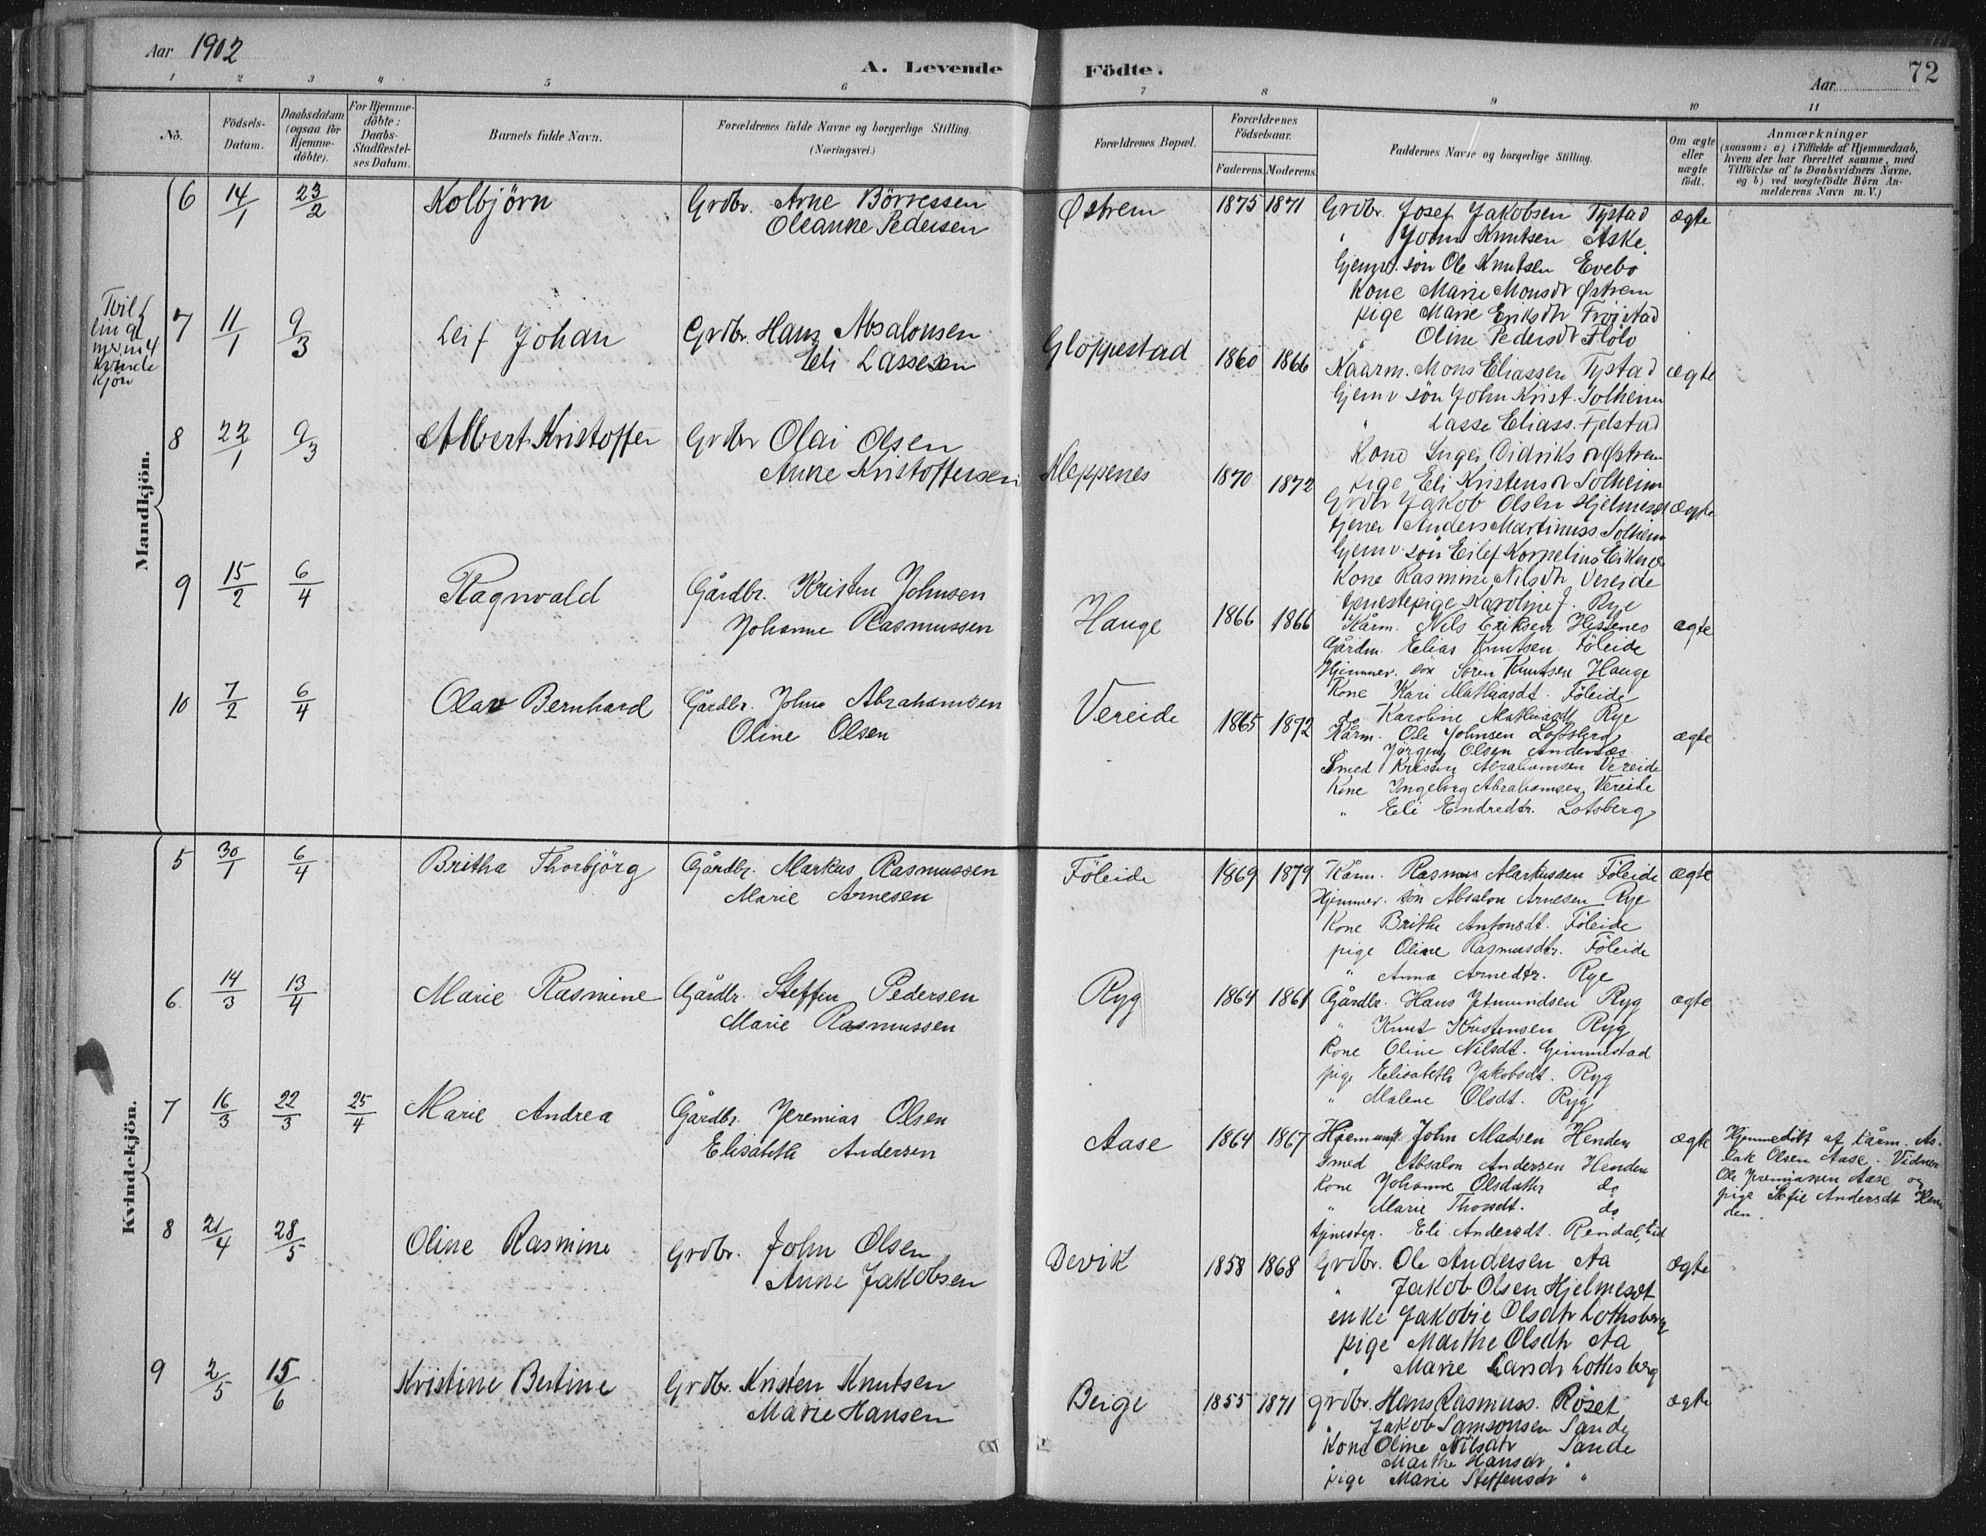 Aar 1902
A. Levende Födte.
Aar 72
1 2 3 4 5 6 7 8 9 10 11
No. Födsels-Datum. Daabsdatum (ogsaa for Hjemmedöbte). For Hjemmedöbte: Daabs-Stadfæstelses Datum. Barnets fulde Navn. Forældrenes fulde Navne og borgerlige Stilling. (Næringsvei.) Forældrenes Bopæl. Forældrenes Födselsaar. Faderens. Moderens. Faddernes Navne og borgerlige Stilling. Om ægte eller uægte födt. Anmærkninger (saasom: a) i Tilfælde af Hjemmedaab, hvem der har forrettet samme, med Tilföielse af to Daabsvidners Navne. og b) ved uægtefödte Börn Anmelderens Navn m. V.)
Mandkjön.
6 14/1 23/2 Kolbjörn Grdbr. Arne Börressen Østrem 1875 1871 Grdbr. Josef Jakobsen Tystad ægte
Oleanne Pedersen " John Knutsen Aske
Gjemv. sön Ole Knutsen Evebö
Kone Marie Monsdr Østrem
pige Marie Eriksdtr Fröjstad
" Oline Pedersdr Flölo
7 11/1 9/3 Leif Johan Grdbr. Hans Absalonsen Gloppestad 1860 1866 Kaarm. Mons Eliassen Tystad ægte
Eli Lassesen Gjemv sön John Krist. Solheim
" Lasse Eliass. Fjelstad
Kone Inger Didriks dr Østrem
pige Eli Kristensdr Solheim
8 22/1 9/3 Albert Kristoffer Grdbr Olai Olsen Kleppenes 1870 1872 Grdbr Jakob Olsen Hjelmeset ægte
Anne Kristoffersen tjener Anders Martinuss. Solheim
Gjemv. sön Eilef Kornelius
Kone Rasmine Nilsdtr Vereide
tjenestepige Karoline J. Rye
9 15/2 6/4 Ragnvald Gårdbr. Kristen Johnsen Hauge 1866 1866 Kårm. Nils Eriksen Hestenes ægte
Johanne Rasmussen Gårdm. Elias Knutsen Föleide
Hjemmev. sön Sören Knutsen Hauge
Kone Kari Mathiasdt. Föleide
do Karoline Mathiasdt Rye
10 7/2 6/4 Olav Bernhard Gårdbr. Johns Abrahamsen Vereide 1865 1872 Kårm. Ole Johnsen Lotsberg ægte
Oline Olsen Jörgen Olsen Andenæs
Smed Kristen Abrahamsen Vereide
Kone Ingeborg Abrahamsen Vereide
" Eli Endredtr. Lotsberg
Kvindekjön.
5 30/1 6/4 Britha Thorbjörg Gårdbr. Markus Rasmussen Föleide 1869 1879 Kårm. Rasmus Markussen Föleide ægte
Marie Arnesen Hjemmev. sön Absalon Arnesen Rye
Kone Brithe Antonsdt. Föleide
pige Oline Rasmusdtr. Föleide
" Anna Arnedtr. Rye
6. 14/3 13/4 Marie Rasmine Gårdbr. Steffen Pedersen Ryg 1864 1861 Gårdbr. Hans Jetmundsen Ryg ægte
Marie Rasmussen " Knut Kristensen Ryg
Kone Oline Nilsdt. Gimmestad
pige Elisabeth Jakobsdt. Ryg
" Malene Olsdt. Ryg
7 16/3 22/3 25/4 Marie Andrea Gårdbr. Jeremias Olsen Aase 1864 1867 John Madsen Henden ægte Hjemmedöbt af kårm. As-
Elisabeth Andersen Smed Absalon Andersen Henden lak Olsen Aase. Vidner
Kone Johanne Olsdatter do Ole Jeremiassen Aase og
" Marie Thosdt. do pige Sofie Andersdt Hen
tjenestep. Eli Andersdt. Rendal, Eid den.
8 21/4 28/5 Oline Rasmine Grdbr. John Olsen Devik 1858 1868 Grdbr. Ole Andersen Aa ægte
Anne Jakobsen " Jakob Olsen Hjelmeset
enke Jakobie Olsdtr Lothsberg
pige Marthe Olsdtr Aa
" Marie Larsdr Lothsberg
9 2/5 15/6 Kristine Bertine Grdbr. Kristen Knutsen Beige 1855 1871 grdbr. Hans Rasmuss. Röset ægte
Marie Hansen " Jakob Samsonsen Sande
Kone Oline Nilsdtr Sande
Marthe Hansdr "
pige Marie Steffensdr "